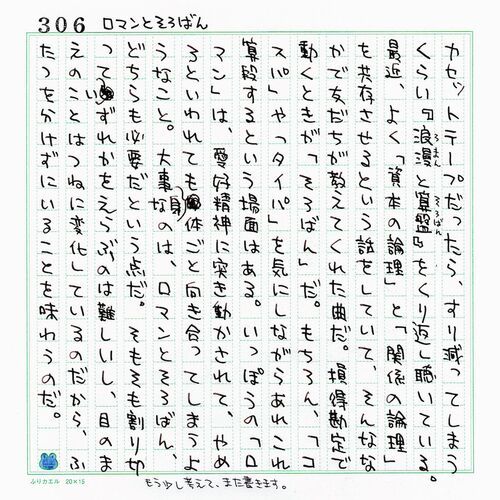 306 ロマンとそろばん
カセットテープだったら、すり減ってしまう
くらい『浪漫と算盤』をくり返し聴いている。
ろまん そろばん
最近、よく「資本の論理」と「関係の論理」
を共存させるという話をしていて、そんなな
かで友だちが教えてくれた曲だ。損得勘定で
動くときが「そろばん」だ。もちろん、「コ
スパ」や「タイパ」を気にしながらあれこれ
算段するという場面はある。いっぽうの「ロ
マン」は、愛好精神に突き動かされて、やめ
ろといわれても身体ごと向き合ってしまうよ
うなこと。大事なのは、ロマンとそろばん、
どちらも必要だという点だ。そもそも割り切
っていずれかをえらぶのは難しいし、目のま
えのことはつねに変化しているのだから、ふ
たつをかけずにいることを味わうのだ。
ふりカエル 20×15
もう少し考えて、また書きます。